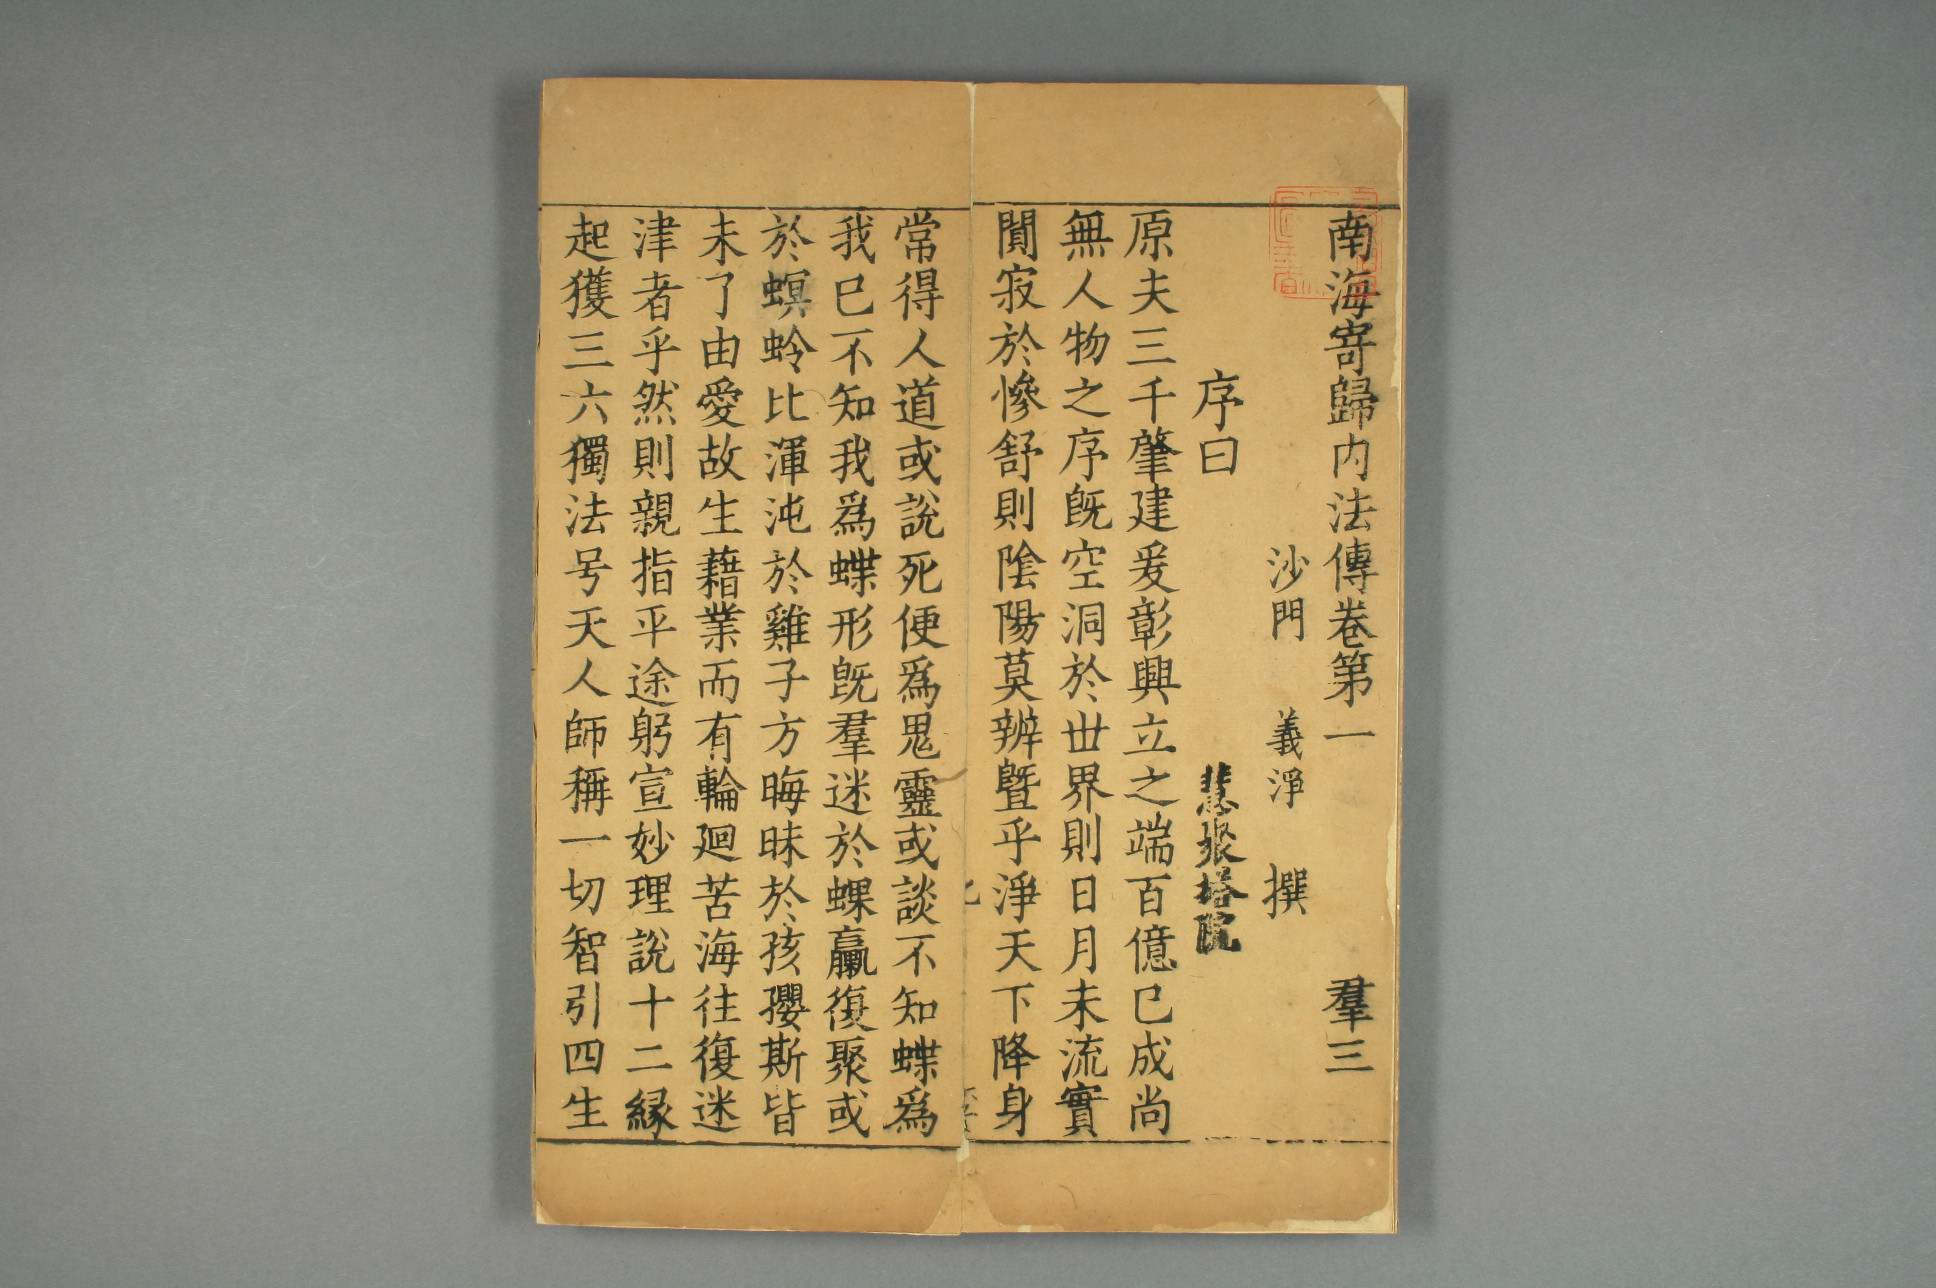 南海寄歸内法傳卷第一 羣三
沙門 義淨 撰
序曰
慧聚塔院
原夫三千肇建爰彰興立之端百億已成尚
無人物之序旣空洞於世界則日月未流實
閴寂於慘舒則陰陽莫辨曁乎淨天下降身
常得人道或說死便爲鬼靈或談不知蝶爲
我已不知我爲蝶形旣羣迷於蜾蠃復聚或
於螟蛉比渾沌於雞子方晦昧於孩孾斯皆
未了由愛故生藉業而有輪廻苦海往復迷
津者乎然則親指平途躬宣妙理說十二緣
起獲三六獨法号天人師稱一切智引四生